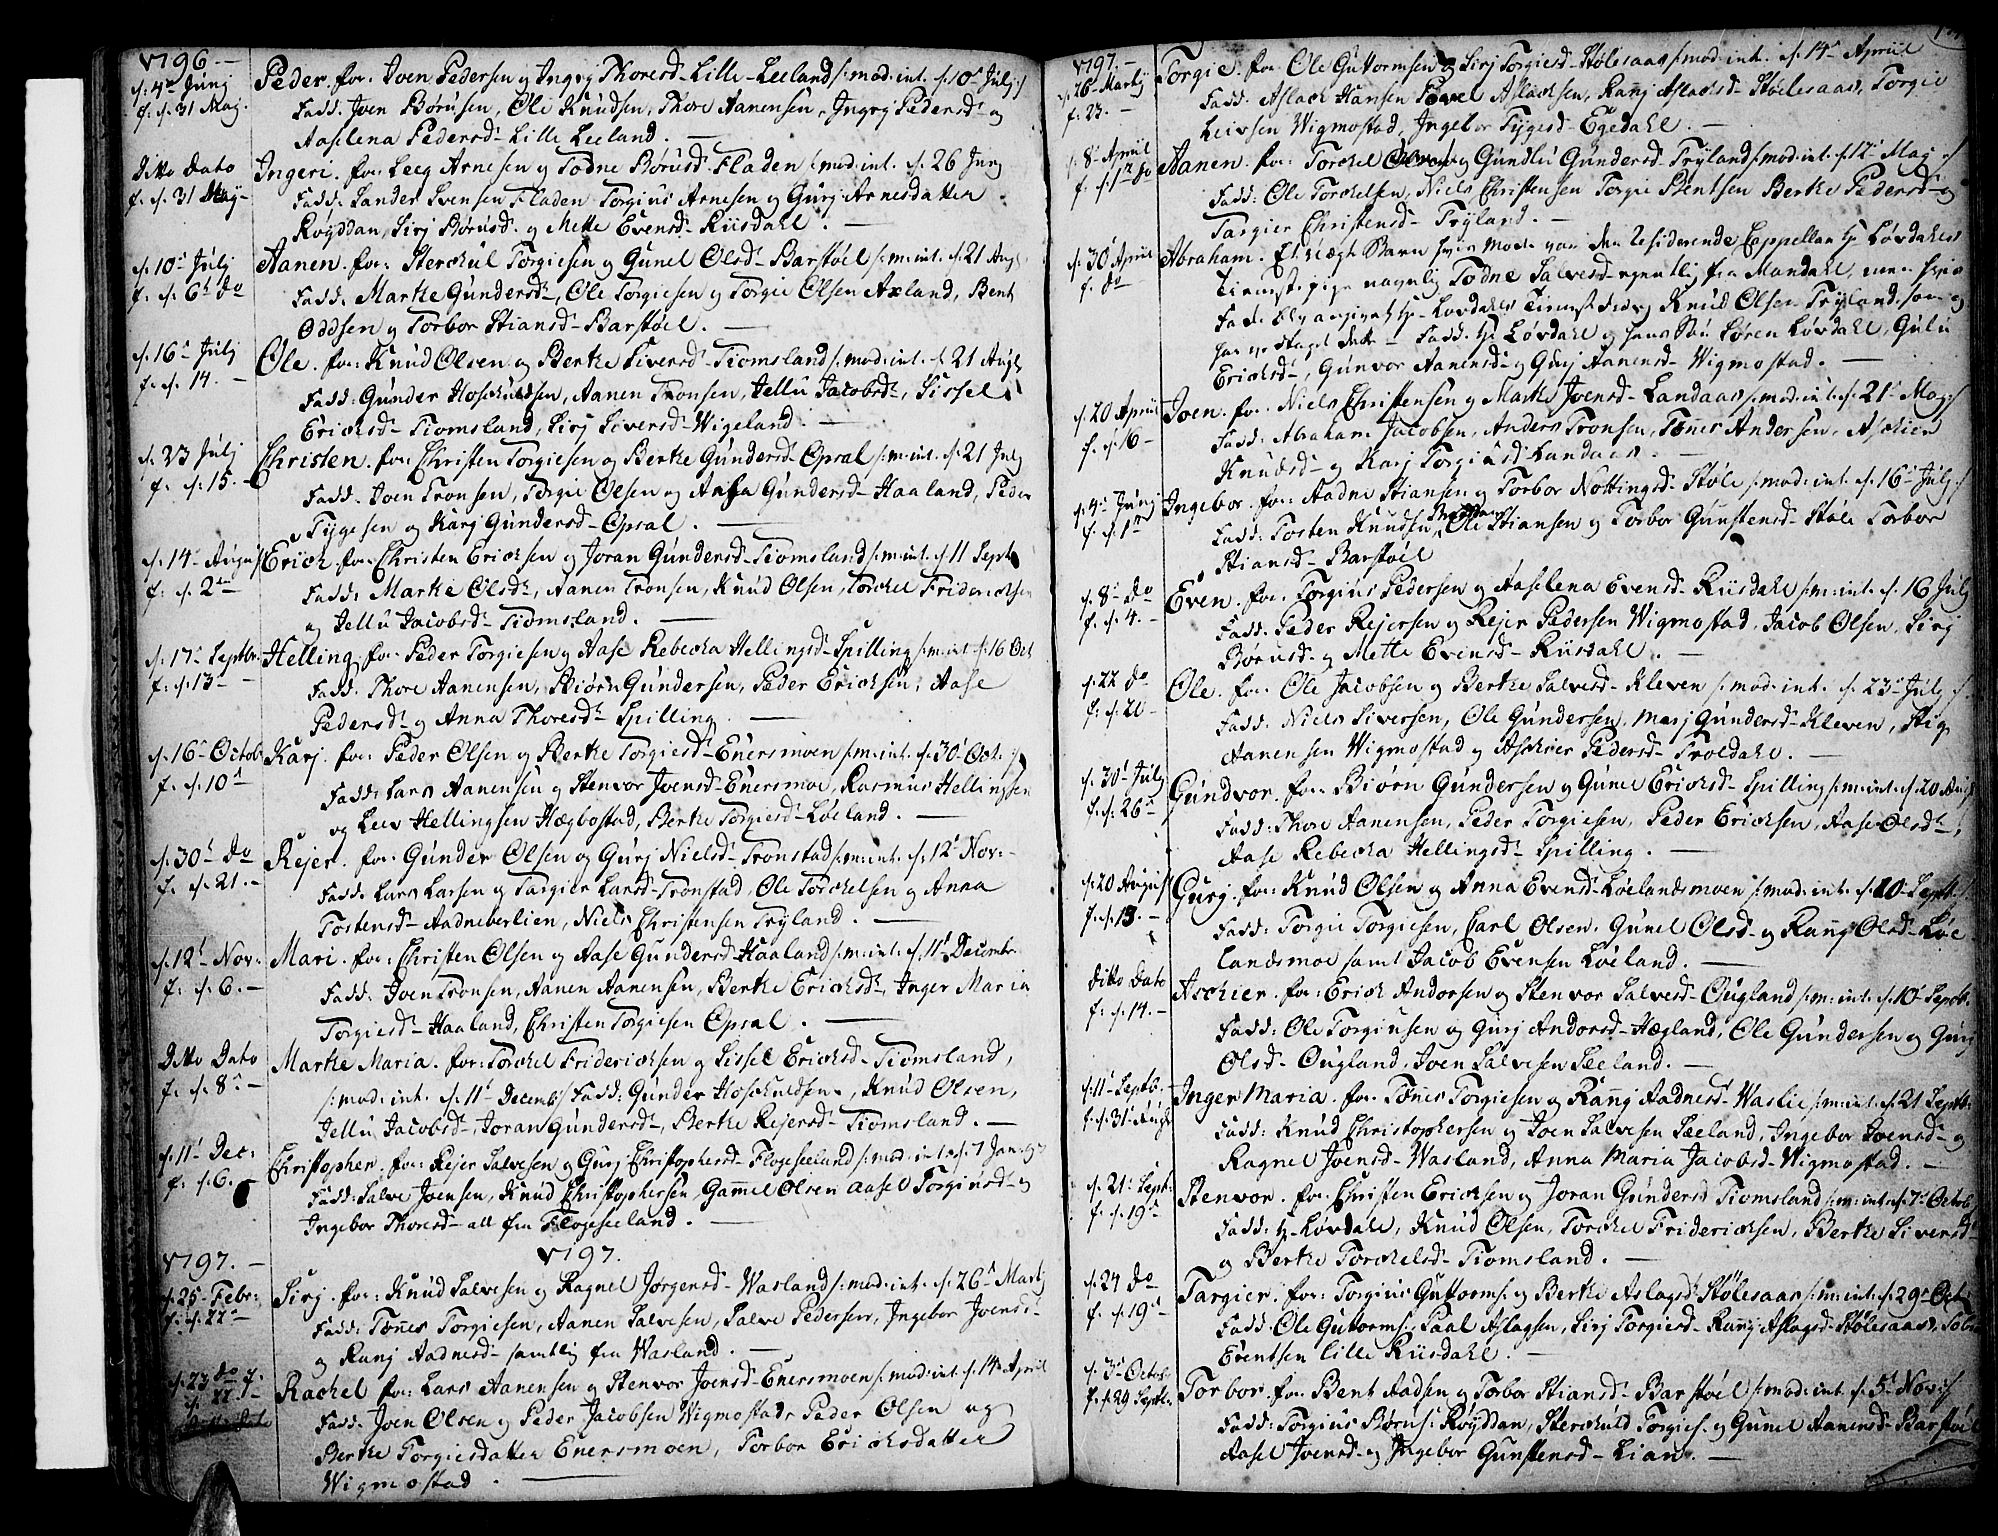 1796.
d: 4de Junj
f: d: 31 Maj.
Peder. for: Joen Pedersen og Ingrj Thoresd- Lille-Leeland /: mod: int. d: 10de Julj :/
Fadd: Joen Børusen, Ole Knudsen, Thore Aanensen, Ingrj Pedersd- og
Aaselena Pedersd- Lille Leeland.
Ditto Dato
f. d. 31 Maij-
Ingeri. for: Leeg Arnesen og Todne Børusd- Fladen /: mod: int. d: 26 Junj
Fadd: Sander Svensen Fladen Torgius Arnesen og Gurj Arnesdatter
Røyddan, Sirj Børusd- og Mette Evensd- Riisdahl.
d: 10de Julj
f: d: 6te do
Aanen. for: Sterchul Torgiesen og Gunel Olsd- Barstøel /: m: int. d: 21 Aug:
Fadd: Marthe Gundersd-, Ole Torgiesen og Torgie Olsen Axland, Bent
Oddsen og Torbor Stiansd- Barstøel.
d: 16de Julj
f: d. 14.
Ole. for: Knud Olsen og Berthe Siversd- Tiomsland /: mod: int. d: 21 Aug:
Fadd: Gunder Hoschuldsen, Aanen Tronsen, Jellu Jacobsd-, Sissel
Ericksd- Tiomsland, Sirj Siversd- Wigeland.
d. 23 Julj
f. d. 15.
Christen. for: Christen Torgiesen og Berthe Gundersd- Opsal /: m: int. d: 21 Julj
Fadd: Joen Tronsen, Torgie Olsen og Aasa Gundersd- Haaland, Peder
Tygesen og Karj Gundersd- Opsal.
d: 14de August
f: d. 2den
Erick. for: Christen Ericksen og Joran Gundersd- Tiomsland /: m: int. d: 11 Septb:
Fadd: Marthe Olsd-, Aanen Tronsen, Knud Olsen, Torchel Fridericksen
og Jellu Jacobsd- Tiomsland.
d. 17de Septbr:
f: d: 13
Helling. for: Peder Torgiesen og Aase Rebecka Hellingsd- Spilling /: m: int. d: 16 Oct
Fadd: Thore Aanensen, Biørn Gundersen, Peder Ericksen, Aase
Pedersd- og Anna Thoresd- Spilling.
d. 16de Octob:
f. d: 10de
Karj. for: Peder Olsen og Berthe Torgiesd- Enersmoen /: m: int. d. 30te Oct. :/
Fadd: Lars Aanensen og Stenvor Joensd- Enersmoe, Rasmus Hellingsen
og Leev Hellingsen Hægbostad, Berthe Torgiesd- Løeland.
d. 30te do
f. d. 21.
Rejer. for: Gunder Olsen og Gurj Nielsd- Tronstad /: m: int. d. 12te Nov:
Fadd: Lars Larsen og Targier Larsd- Tronstad, Ole Torchelsen og Anna
Tostensd- Aadneberlien, Niels Christensen Tryland.
d. 12te Nov:
f: d. 6.
Mari. for: Christen Olsen og Aase Gundersd- Haaland /: m: int. d. 11te Decembr.
Fadd: Joen Tronsen, Aanen Aanensen, Berthe Ericksd-, Inger Maria
Torgiesd- Haaland, Christen Torgiesen Opsal.
Ditto Dato
f. d. 8de
Marthe Maria. for: Torchel Fridericksen og Sissel Ericksd- Tiomsland,
/: mod: int. d. 11te Decemb:/ Fadd: Gunder Hoschuldsen, Knud Olsen,
Jellu Jacobsd-, Joran Gundersd-, Berthe Rejersd- Tiomsland.
d. 11te Dec:
f. d. 6.
Christopher. for: Rejer Salvesen og Gurj Christophersd- Flogeseeland /: mod: int. d. 7 Jan: 97
Fadd: Salve Joensen, Knud Christophersen, Gammel Olsen Aasel Torginsd- og
Ingebor Thoresd- all fra Flogeseeland.
1797.
1797.
d. 25 Febr:
f. d. 22de
Sirj. for: Knud Salvesen og Ragnel Jørgensd- Wasland /: mod: int. d. 26de Martj
Fadd: Tønnes Torgiesen, Aanen Salvesen, Salve Pedersen, Ingebor Joensd-
og Ranj Aadnesd- samtlig fra Wasland.
d. 23 do f.
d. 22.
Rachel. for: Lars Aanensen og Stenvor Joensd- Enersmoen /: mod: int. d. 14de April
Fadd: Joen Olsen og Peder Jacobsen Wigmostad, Peder Olsen og
Berthe Torgiesdatter Enersmoen, Torbor Ericksdatter
Wigmostad.
1797.
d. 26 Martj
f. 23.
Torgie. for: Ole Guttormsen og Sirj Torgiesd- Stølesaas /: mod: int. d. 14de Apriil
Fadd: Aslach Hansen Aslachsen, Ranj Aslachsd- Stølesaas, Torgie
Leivsen Wigmostad, Ingebor Tygesd- Egedahl.
d. 8de Apriil
f. d. 1te do
Aanen. for: Torchel og Gundlu Gundersd- Tryland /: mod: int. d. 12te Maj :/
Fadd: Ole Torchelsen, Niels Christensen Torgie Bentsen Berthe Pedersd- og
Targier Christensd- Tryland.
d. 30te Apriil
f. do
Abraham. Et Uægte Barn hvis Moder var den residerende Cappellan Hr. Løvdahls
Tieneste pige naynlig Todne Salvesd- egentlig fra Mandahl, men
Fader bly angivet Hr. Løvdahls Tieneste Knud Olsen Tryland som og
har ved staget dette - Fadd. Hr. Løvdahl og hans Søn Søren Løvdahl, Gulu
Ericksd-, Gunvor Aanensd- og Gurj Aanensd- Wigmostad.
d. 20 Apriil
f. d. 16
Joen. for: Niels Christensen og Marthe Joensd- Landaas /: mod: int. d. 21te Maj :/
Fadd: Abraham Jacobsen, Anders Tronsen, Tønnes Andersen, Aschier
Knudsd- og Karj Torgiusd Landaas.
d. 4de Junj
f. d. 1te
Ingebor. for: Aadne Stiansen og Torbor Nottingsd- Støle /: mod: int. d. 16de Julj :/
Fadd: Tosten Knudsen Ole Stiansen og Torbor Gunstensd- Støle Torbor
Stiansd- Barstøel
d. 8de do
f. d. 4.
Even. for: Torgius Pedersen og Aaselena Evensd- Riisdahl /: m: int. d. 16 Julj
Fadd: Peder Rejersen og Rejer Pedersen Wigmostad, Jacob Olsen, Sirj
Børusd- og Mette Evensd- Riisdahl.
d. 22 do
f. d. 20
Ole. for: Ole Jacobsen og Berthe Salvesd- Kleven /: mod: int. d. 23de Julj :/
Fadd: Niels Siversen, Ole Gundersen, Marj Gundersd- Kleven, Stig
Aanensen Wigmostad og Aschier Pedersd- Troldahl.
d. 30te Julj
f. d. 26de
Gundvor. for: Biørn Gundersen og Gunel Ericksd- Spilling /: m: int. d. 20 Aug:
Fadd: Thore Aanensen, Peder Torgiesen, Peder Ericksen, Aase Olsd-,
Aase Rebecka Hellingsd- Spilling.
d. 20 August
f. d. 13.
Gurj. for: Knud Olsen og Anna Evensd- Løelandsmoen /: mod: int. d. 10. Septb:
Fadd: Torgie Torgiesen, Carl Olsen, Gunel Olsd- og Ranj Olsd- Løe
landsmoe samt Jacob Evensen Løeland.
Ditto Dato
f. d. 14.
Aschier. for: Erick Andorsen og Stenvor Salvesd- Ougland /: m: int. d. 10de Septb.
Fadd: Ole Torgiusen og Gurj Andorsd- Hægland, Ole Gundersen og Gurj
Olsd- Ougland, Joen Salvesen Leeland.
d. 11te Septb.
f. d. 31te Aug:
Inger Maria. for: Tønnes Torgiesen og Ranj Aadnesd- Waslie /: m: int. d. 21 Septb:
Fadd: Knud Christophersen og Joen Salvesen Sæeland, Ingebor Joensd- og
Ragnel Joensd- Wasland, Anna Maria Jacobsd- Wigmostad.
d. 21te Sept:
f. d. 19de
Stenvor. for: Christen Ericksen og Joran Gundersd Tiomsland /: m: int. d. 7de Octob
Fadd: Hr. Løvdahl, Knud Olsen, Torchel Fridericksen, Berthe Siversd-
og Berthe Torchelsd- Tiomsland.
d. 24 do
f. d. 19de
Targier. for: Torgius Guttorms: og Berthe Aslagsd- Stølesaas /: m: int. d. 29de Oct
Fadd: Ole Guttorms: Paal Aslagsen, Sirj Torgiesd- Ranj Aslagsd- Stølesaas,
Eventsen Lille Riisdahl.
d. 3de Octob.
f. d. 29 Septb.
Torbor. for: Bent Aadsen og Torbor Stiansd- Barstøel /: mod: int. d. 5te Nov: :/
Fadd: Torgius Børus: Røyddan, Sterchuld Torgies: og Gunel Aanensd- Barstøel
Aasel Joensd- og Ingebor Gunstensd- Lian.